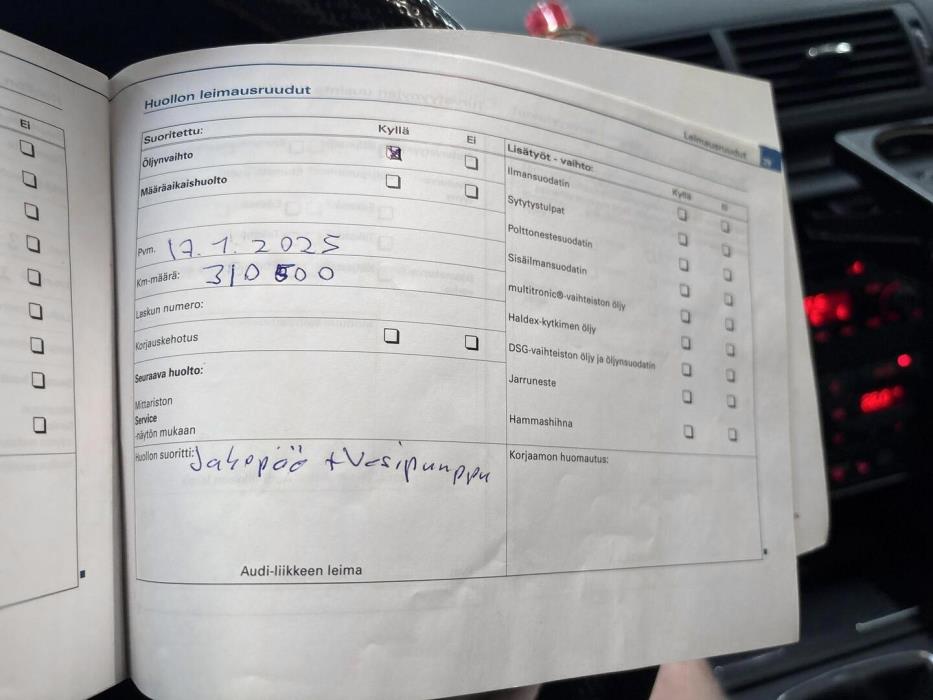 Ei
Huollon leimausruudut
Suoritettu: Kyllä Ei
Öljynvaihto
Määräaikaishuolto
Pvm. 17.1.2025
Km-määrä: 310500
Laskun numero:
Korjauskehotus
Seuraava huolto:
Mittariston
Service
-näytön mukaan
Huollon suoritti: Jakopää + Vesipumppu
Audi-liikkeen leima
Leimausruudut
Lisätyöt - vaihto: Kyllä Ei
Ilmansuodatin
Sytytystulpat
Polttonestesuodatin
Sisäilmansuodatin
multitronic®-vaihteiston öljy
Haldex-kytkimen öljy
DSG-vaihteiston öljy ja öljynsuodatin
Jarruneste
Hammashihna
Korjaamon huomautus: